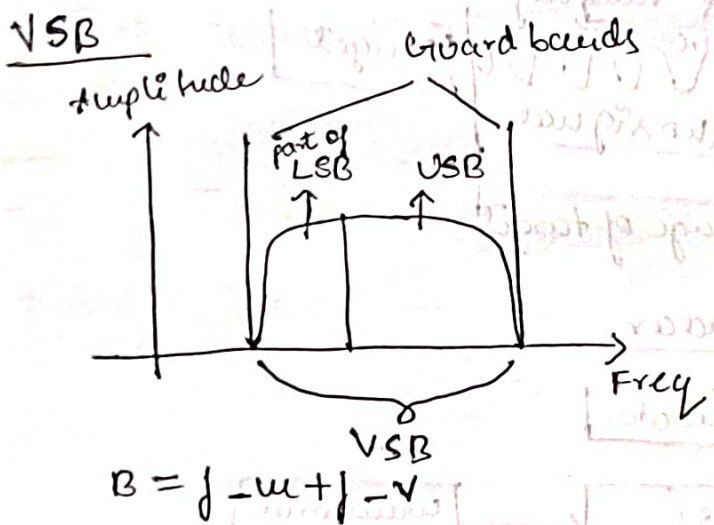 VSB
Guard bands
Amplitude
part of
LSB
USB
Freq
VSB
B = f-m+f-v